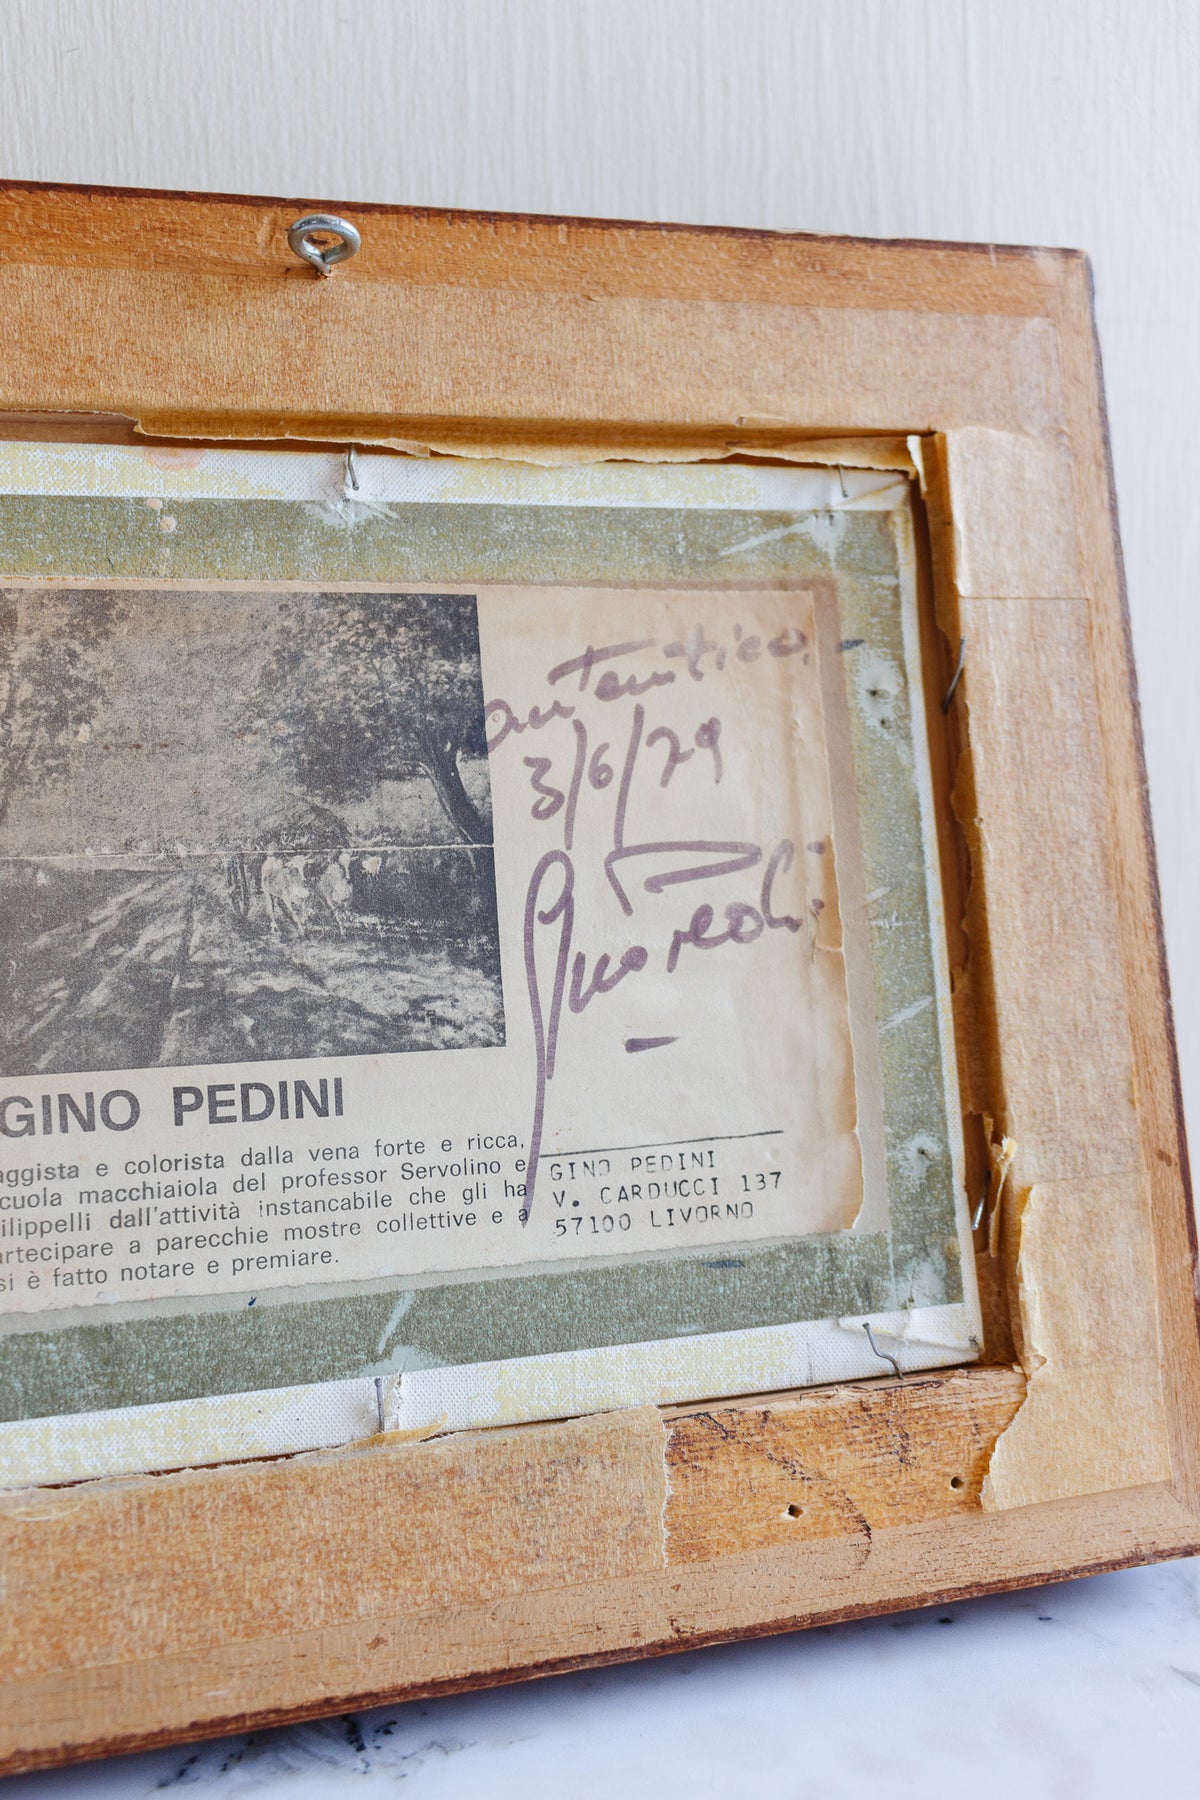 autentico
3/6/79
Gino Pedini
GINO PEDINI
aggista e colorista dalla vena forte e ricca,
cuola macchiaiola del professor Servolino e
ilippelli dall'attività instancabile che gli ha
artecipare a parecchie mostre collettive e a
si è fatto notare e premiare.
GINO PEDINI
V. CARDUCCI 137
57100 LIVORNO